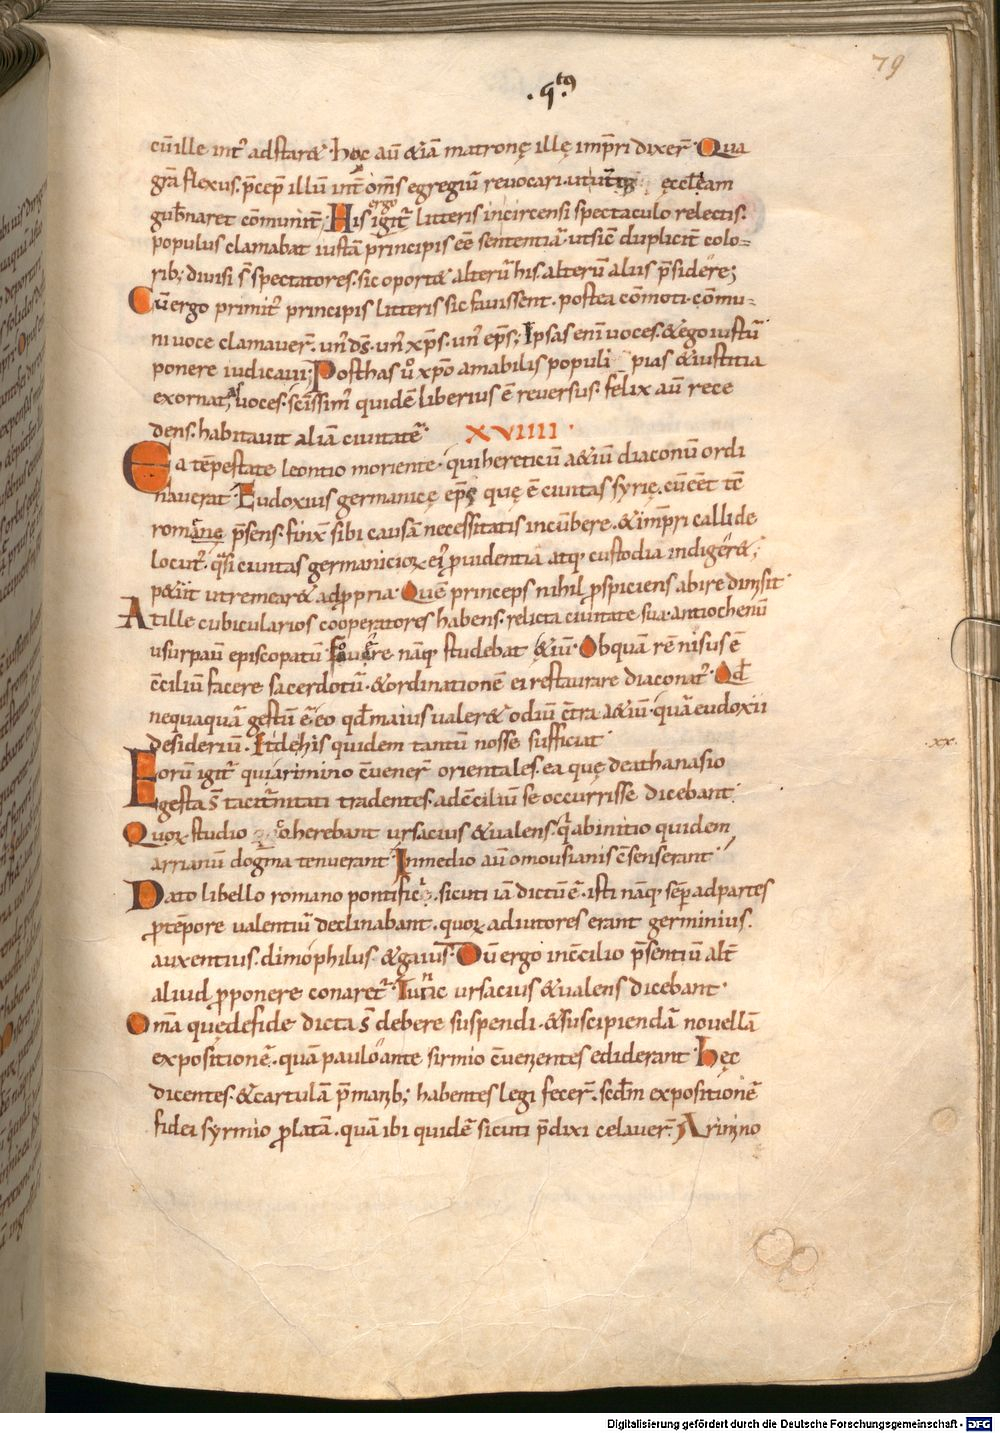 79
.q̄tꝰ.
cū ille int̄ adstaret. hęc aū & iā matronę illę imp̄ri dixer̄. Qua
gr̄a flexus. p̄cep̄ illū int̄ om̄s egregiū revocari. ut ecc̄leam
gub̄naret cōmunit̄. His igit̄ ergo litteris in circensi spectaculo relectis.
populus clamabat iustā principis eē sententiā. ut sic̄ duplicit̄ colo-
rib; divisi s̄t spectatores. sic oportet alterū his. alterū aliis p̄sidere;
Cū ergo primit̄ principis litteris sic favissent. postea cōmoti. cōmu-
ni voce clamaver̄. un̄ ds̄. un̄ xp̄s. un̄ ep̄s; Ipsas eni voces. & ego iustū
ponere iudicavi; Post has ů xp̄o amabilis populi pias & iustitia
exornatas voces. sc̄issim̄ quidē liberius ē reversus. felix aū rece
dens. habitavit aliā civitatē. XVIIII.
Ea tēpestate leontio moriente. qui hereticū aetiū diaconū ordi
naverat. Eudoxius germanicę ep̄s quę ē civitas syrię. cū eēt tē
romanę p̄sens. finx̄ sibi causā necessitatis incūbere. & imp̄ri callide
locut̄. q̄si civitas germanicioꝝ eiꝰ p̄videntia atq; custodia indigeret;
petiit ut remearet ad p̄pria. Quē princeps nihil p̄spiciens abire dimisit.
At ille cubicularios cooperatores habens. relicta civitate sua. antiochenū
usurpavit episcopatū. Fovere nāq; studebat aetiū. Ob quā rē nisus ē
c̄ciliū facere sacerdotū. & ordinationē ei restaurare diaconatꝰ. Qd̄
nequaquā gestū ē. eo qd̄ maius valeret odiū c̄tra aetiū. quā eudoxii
desideriū. Et de his quidem tantū nosse sufficiat.
.xx.
Eorū igit̄ qui arimino c̄vener̄ orientales. ea quę de athanasio
gesta s̄t tacit̄nitati tradentes. ad c̄ciliū se occurrisse dicebant.
Quoꝝ studio coherebant ursacius & valens. q̄ ab initio quidem
arrianū dogma tenuerant. In medio aū omousianis c̄senserant.
Dato libello romano pontifici. sicuti iā dictū ē. isti nāq; sēp ad partes
p̄ tēpore valentiū declinabant. quoꝝ adiutores erant germinius.
auxentius. dimophilus. & gaius. Dū ergo in c̄cilio p̄sentiū alt̄
aliud p̄ponere conaret̄. Tunc ursacius & valens dicebant.
Om̄a quę de fide dicta s̄t debere suspendi. & suscipiendā novellā
expositionē. quā paulo ante sirmio c̄venientes ediderant. hęc
dicentes. & cartulā p̄ manib; habentes legi fecer̄. sc̄dm expositionē
fidei syrmio p̄latā. quā ibi quidē sicuti p̄dixi celaver̄. Arimino
Digitalisierung gefördert durch die Deutsche Forschungsgemeinschaft - DFG